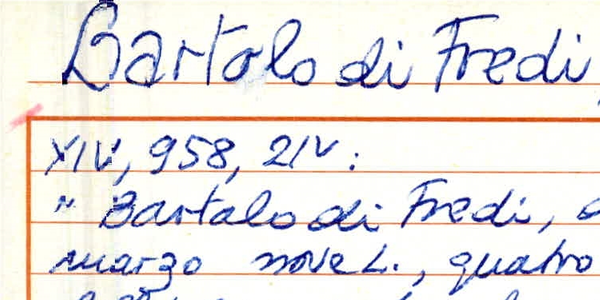 Bartolo di Fredi,
XIV, 958, 21v:
" Bartalo di Fredi,
marzo nove L., quatro